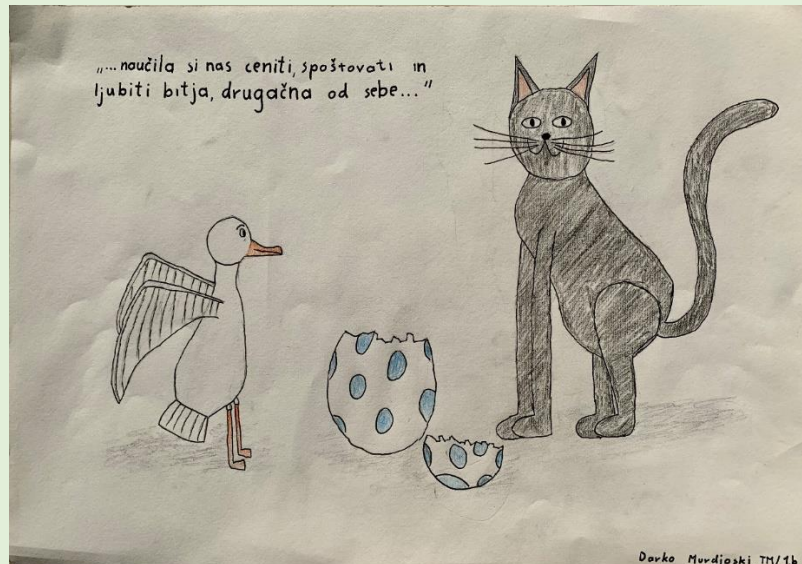 „...naučila si nas ceniti, spoštovati in
ljubiti bitja, drugačna od sebe..."
Darko Murdjoski TM/1b